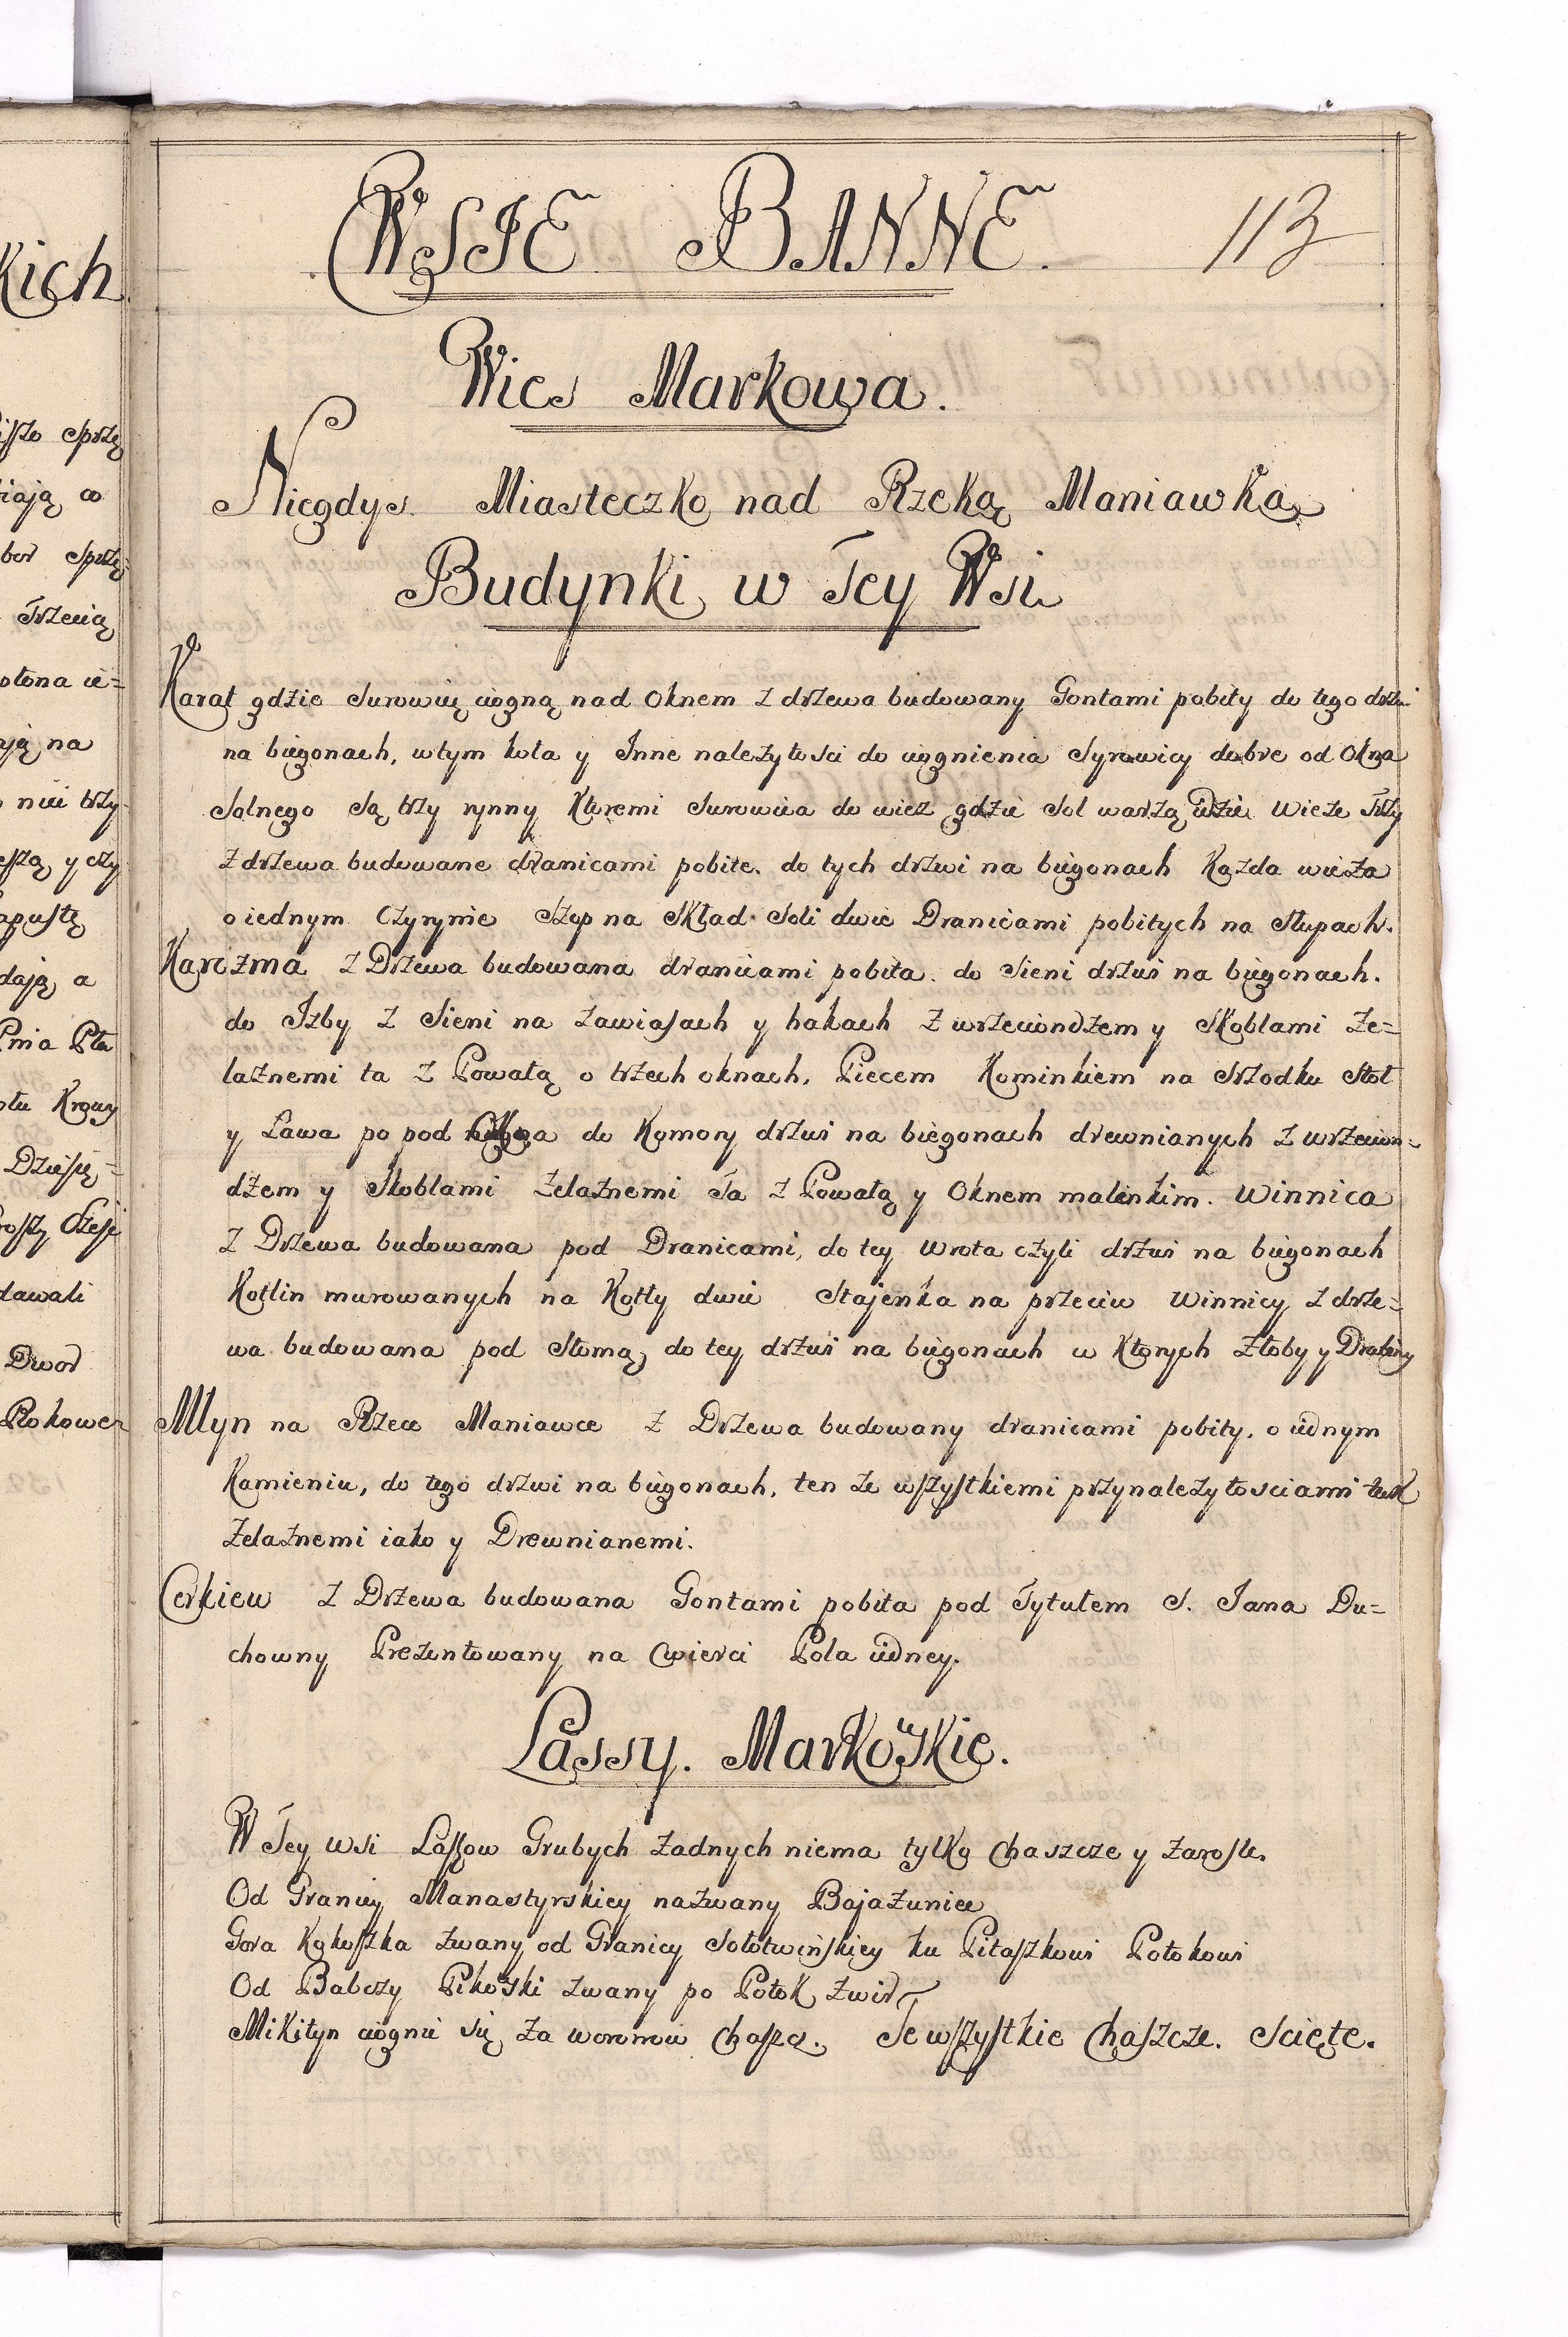 WSIE BANNE. 113
Wies Markowa.
Niegdys Miasteczko nad Rzeką Maniawką
Budynki w Tey Wsi
Karat gdzie Surowicę ciągną nad Oknem z drzewa budowany Gontami pobity do tego drzwi
na biegonach, w tym koła y Inne nalezytosci do ciągnienia Syrowicy dobre od Okna
Solnego Są trzy rynny Ktoremi Surowica do wiez gdzie Sol warzą idzie Wieze Trzy
z drzewa budowane dranicami pobite. do tych drzwi na biegonach Kazda wieza
o iednym Czyrynie Szop na Skład Soli dwie Dranicami pobitych na Słupach.
Karczma z Drzewa budowana dranicami pobita. do Sieni drzwi na biegonach.
do Izby z Sieni na zawiasach y hakach z wrzeciondzem y Skoblami ze=
laznemi ta z Powałą o trzech oknach, Piecem Kominkiem na Srzodku Stoł
y Ława po pod do Komory drzwi na biegonach drewnianych z wrzecion=
dzem y Skoblami zelaznemi Ta z Powałą y Oknem malenkim. Winnica
z Drzewa budowana pod Dranicami, do tey wrota czyli drzwi na biegonach
Kotlin murowanych na Kotły dwie Stajenka na przeciw Winnicy z drze=
wa budowana pod Słomą, do tey drzwi na biegonach w Ktorych Złoby y Drabiny
Młyn na Rzece Maniawce z Drzewa budowany dranicami pobity, o iednym
Kamieniu, do tego drzwi na biegonach, ten ze wszystkiemi przynalezytosciami tak
zelaznemi iako y Drewnianemi.
Cerkiew z Drzewa budowana Gontami pobita pod Tytułem S. Jana Du=
chowny Prezentowany na Cwierci Pola iedney.
Lassy. Markowskie.
W Tey wsi Lassow Grubych zadnych niema tylko Chaszcze y zarosle.
Od Granicy Manastyrskiey nazwany Bajazunice
Gora Kokoszka zwany od Granicy Sołotwinskiey ku Pitaszkowi Potokowi
Od Babczy Pikowski zwany po Potok Zwir
Mikityn ciągnie się za chaszcz. Te wszystkie Chaszcze. Scięte.